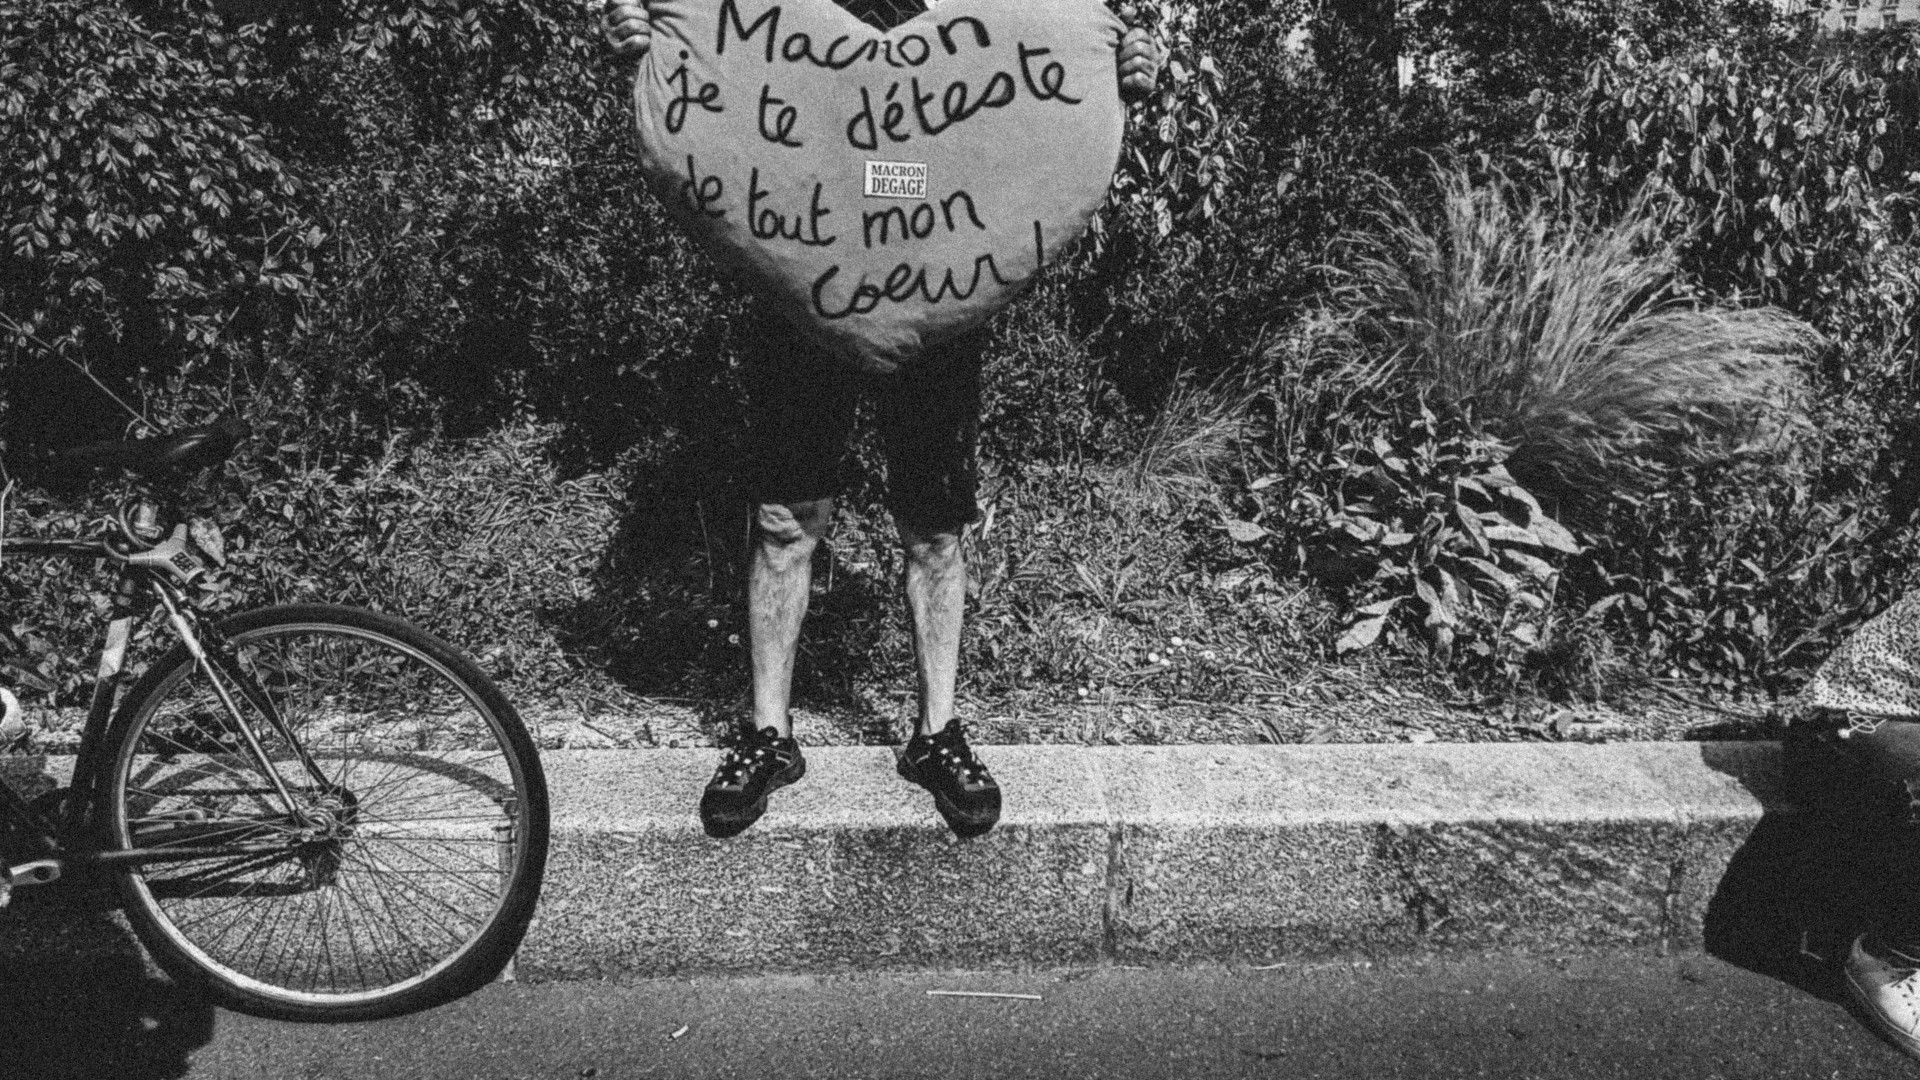 Macron
je te déteste
MACRON
DEGAGE
de tout mon
coeur !